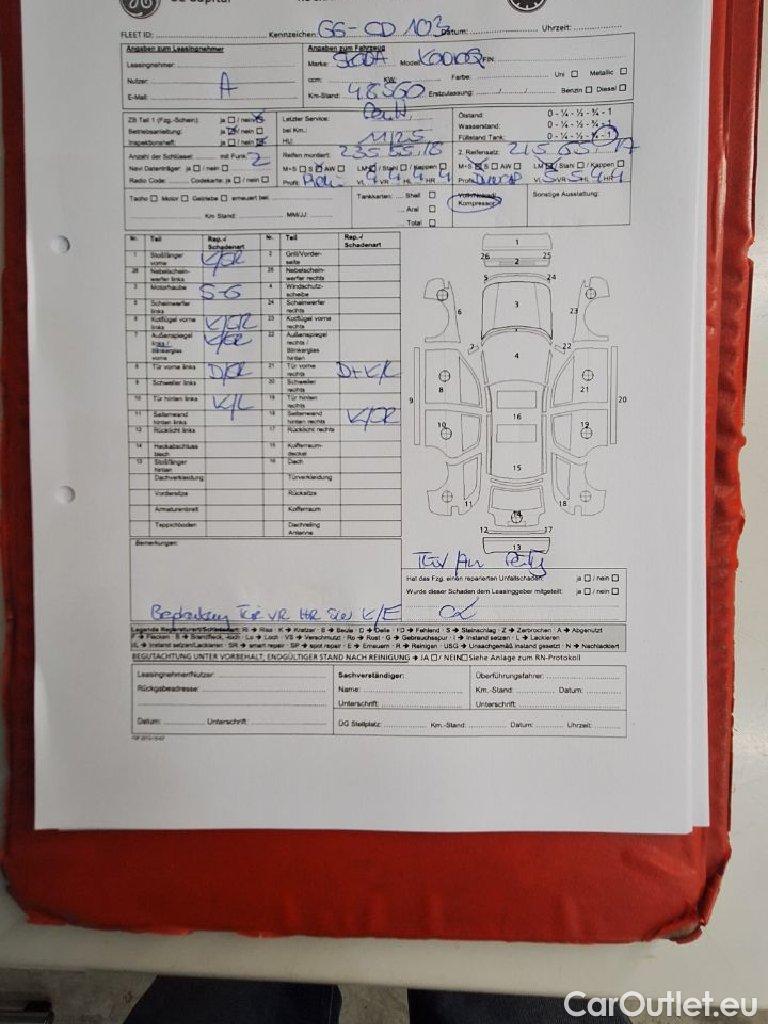 GE Capital
FLEET ID: Kennzeichen: GG-CD 103 Datum: Uhrzeit:
Angaben zum Leasingnehmer Angaben zum Fahrzeug
Leasingnehmer: Marke: SKODA Model KODIAQ FIN:
Nutzer: A ccm: KW: Farbe: Uni Metallic
E-Mail: Km-Stand: 48560 Erstzulassung: / / Benzin Diesel
ZB Teil 1 (Fzg.-Schein): ja / nein Letzter Service: Ölstand: 0 - ¼ - ½ - ¾ - 1
Betriebsanleitung: ja / nein bei Km.: Wasserstand: 0 - ¼ - ½ - ¾ - 1
Inspektionsheft: ja / nein HU: 11/25 Füllstand Tank: 0 - ¼ - ½ - ¾ - 1
Anzahl der Schlüssel: mit Funk: 2 Reifen montiert: 235 55 18 2. Reifensatz: 215 65 17
Navi Datenträger: ja / nein M+S S AW LM / Stahl / Kappen M+S S AW LM / Stahl / Kappen
Radio Code: Codekarte: ja / nein Profil VL 4 VR 4 HL 4 HR 4 Profil VL 5 VR 5 HL 4 HR 4
Tacho Motor Getriebe erneuert bei: Tankkarten: Shell Kompressor Sonstige Ausstattung:
Aral
Km Stand: MM/JJ: Total
Nr. Teil Rep.-/ Schadenart Nr. Teil Rep.-/ Schadenart
1 Stoßfänger vorne K/SR 2 Grill/Vorderseite
26 Nebelscheinwerfer links 25 Nebelscheinwerfer rechts
3 Motorhaube S-G 4 Windschutzscheibe
5 Scheinwerfer links 24 Scheinwerfer rechts
6 Kotflügel vorne links K/SR 23 Kotflügel vorne rechts
7 Außenspiegel links / Blinkerglas vorne K/SR 22 Außenspiegel rechts / Blinkerglas hinten
8 Tür vorne links D/SR 21 Tür vorne rechts D+K/L
9 Schweller links 20 Schweller rechts
10 Tür hinten links K/L 19 Tür hinten rechts
11 Seitenwand hinten links 18 Seitenwand hinten rechts K/SR
12 Rücklicht links 17 Rücklicht rechts
14 Heckabschlussblech 15 Kofferraumdeckel
13 Stoßfänger hinten 16 Dach
Dachverkleidung Türverkleidung
Vordersitze Rücksitze
Armaturenbrett Kofferraum
Teppichboden Dachreling Antenne
1
26 2 25
5 24
3
6 23
7 22
4
8 21
9 20
16
10 19
15
11 18
14
12 17
13
Bemerkungen:
Hat das Fzg. einen reparierten Unfallschaden: ja / nein
Wurde dieser Schaden dem Leasinggeber mitgeteilt: ja / nein
K/E
Legende Reparaturart/Schadenart: Ri → Riss · K → Kratzer · B → Beule · D → Delle · FD → Fehlend · S → Steinschlag · Z → Zerbrochen · A → Abgenutzt
F → Flecken · B → Brandfleck, -loch · Lo → Loch · VS → Verschmutzt · Ro → Rost · G → Gebrauchsspur · I → Instand setzen · L → Lackieren
IL → Instand setzen/Lackieren · SR → smart repair · SP → spot repair · E → Erneuern · R → Reinigen · USG → Unsachgemäß instand gesetzt · N → Nachlackiert
BEGUTACHTUNG UNTER VORBEHALT, ENDGÜLTIGER STAND NACH REINIGUNG → JA / NEIN Siehe Anlage zum RN-Protokoll
Leasingnehmer/Nutzer: Sachverständiger: Überführungsfahrer:
Rückgabeadresse: Name: Km.-Stand: Datum:
Unterschrift: Unterschrift:
Datum: Unterschrift: DG Stellplatz: Km.-Stand: Datum: Uhrzeit:
CarOutlet.eu